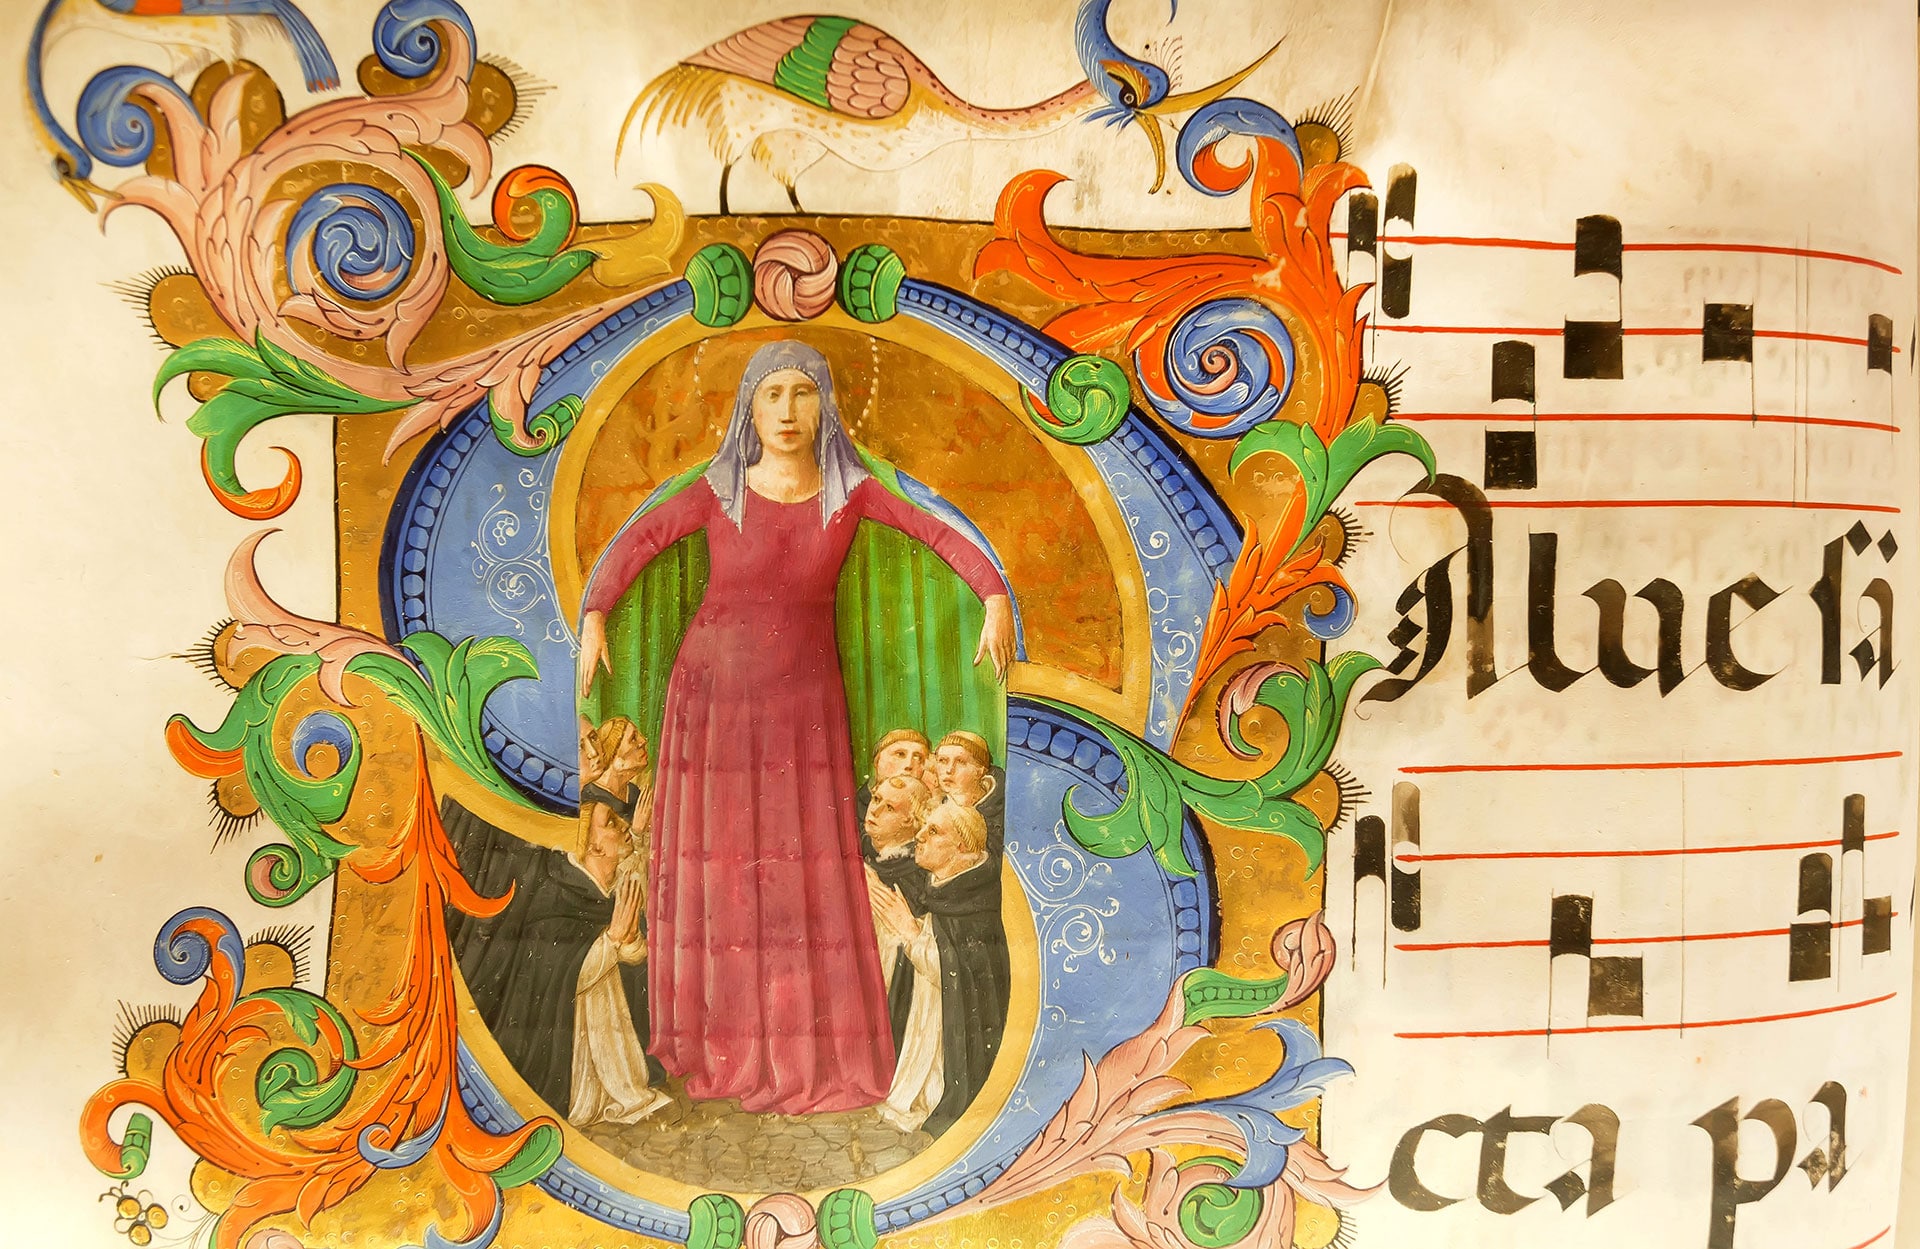 SAlue sã
cta pa